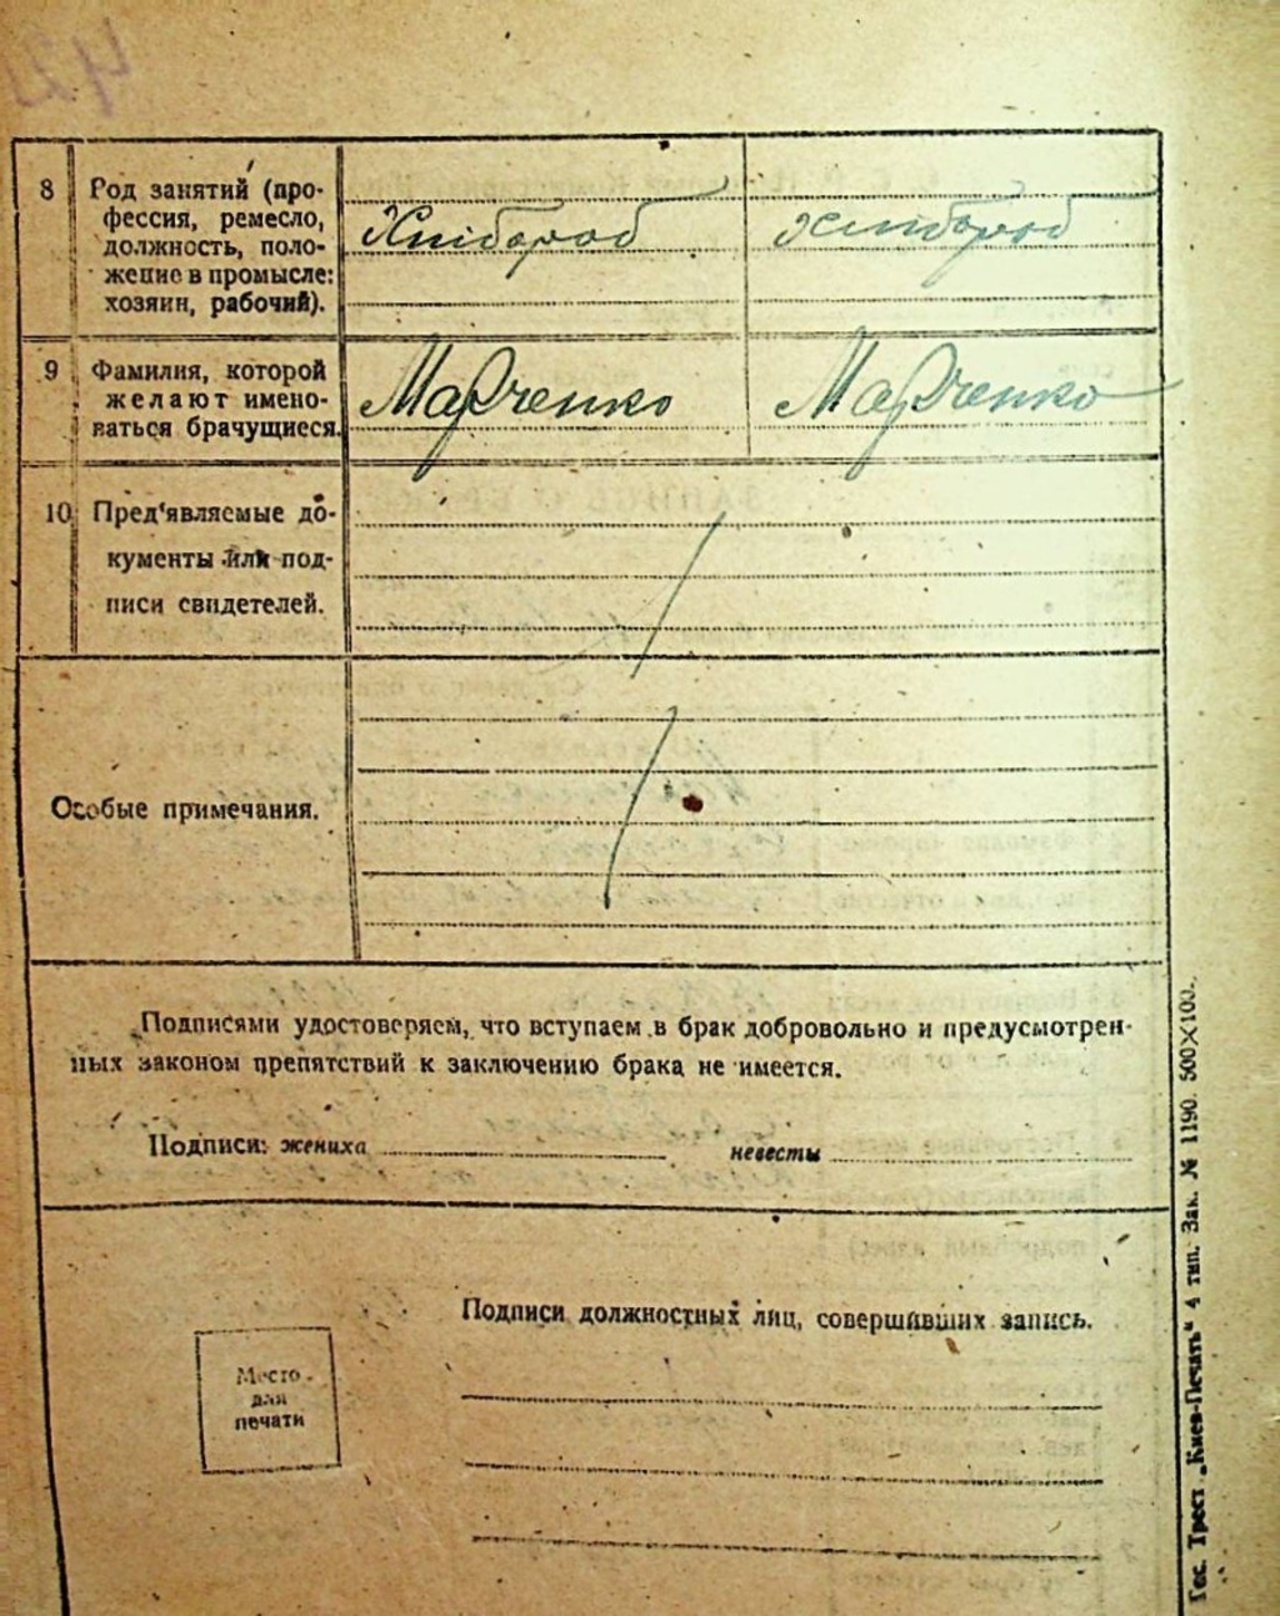 8 Род занятий (про-
фессия, ремесло,
должность, поло-
жение в промысле:
хозяин, рабочий).
Хлібороб Хлібороб
9 Фамилия, которой
желают имено-
ваться брачущиеся.
Марченко Марченко
10 Пред'являемые до-
кументы или под-
писи свидетелей.
Особые примечания.
Подписями удостоверяем, что вступаем в брак добровольно и предусмотрен-
ных законом препятствий к заключению брака не имеется.
Подписи: жениха невесты
Подписи должностных лиц, совершивших запись.
Место
для
печати
Гос. Трест „Киев-Печать“ 4 тип. Зак. № 1190. 500×100.